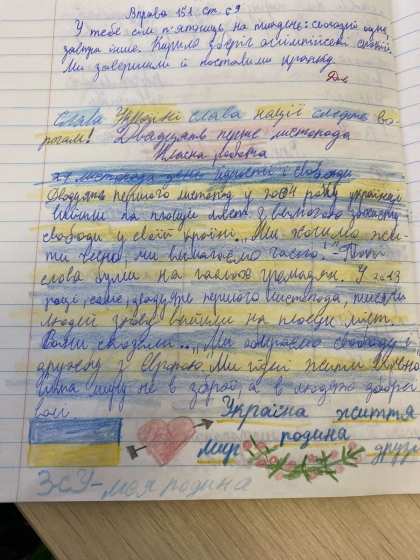 Вправа 151 ст. 69
У тебе сім п'ятниць на тиждень: сьогодні одне,
завтра інше. Кирило зберіг олімпійський спокій.
Ми завершили й поставили крапку.
Слава Україні слава нації смерть во-
рогам! Двадцять перше листопада
Класна робота
21 листопада день гідності і свободи
Двадцять першого листопад у 2004 році українці
вийшли на площі міст з вимогою захисту
свободи у своїй країні. „Ми хочемо жи-
ти чесно ми вимагаємо чесно." Такі
слова були на гаслах громадян. У 2013
році, саме, двадцять першого листопада, тисячи
людей знову вийшли на площі міст.
Вони сказали... „Ми обираємо свободу і
дружбу з Європою." Ми гідні жити
миру не в зброї а в людях доброї
волі
Україна життя
мир родина друзі
З-с У- моя родина